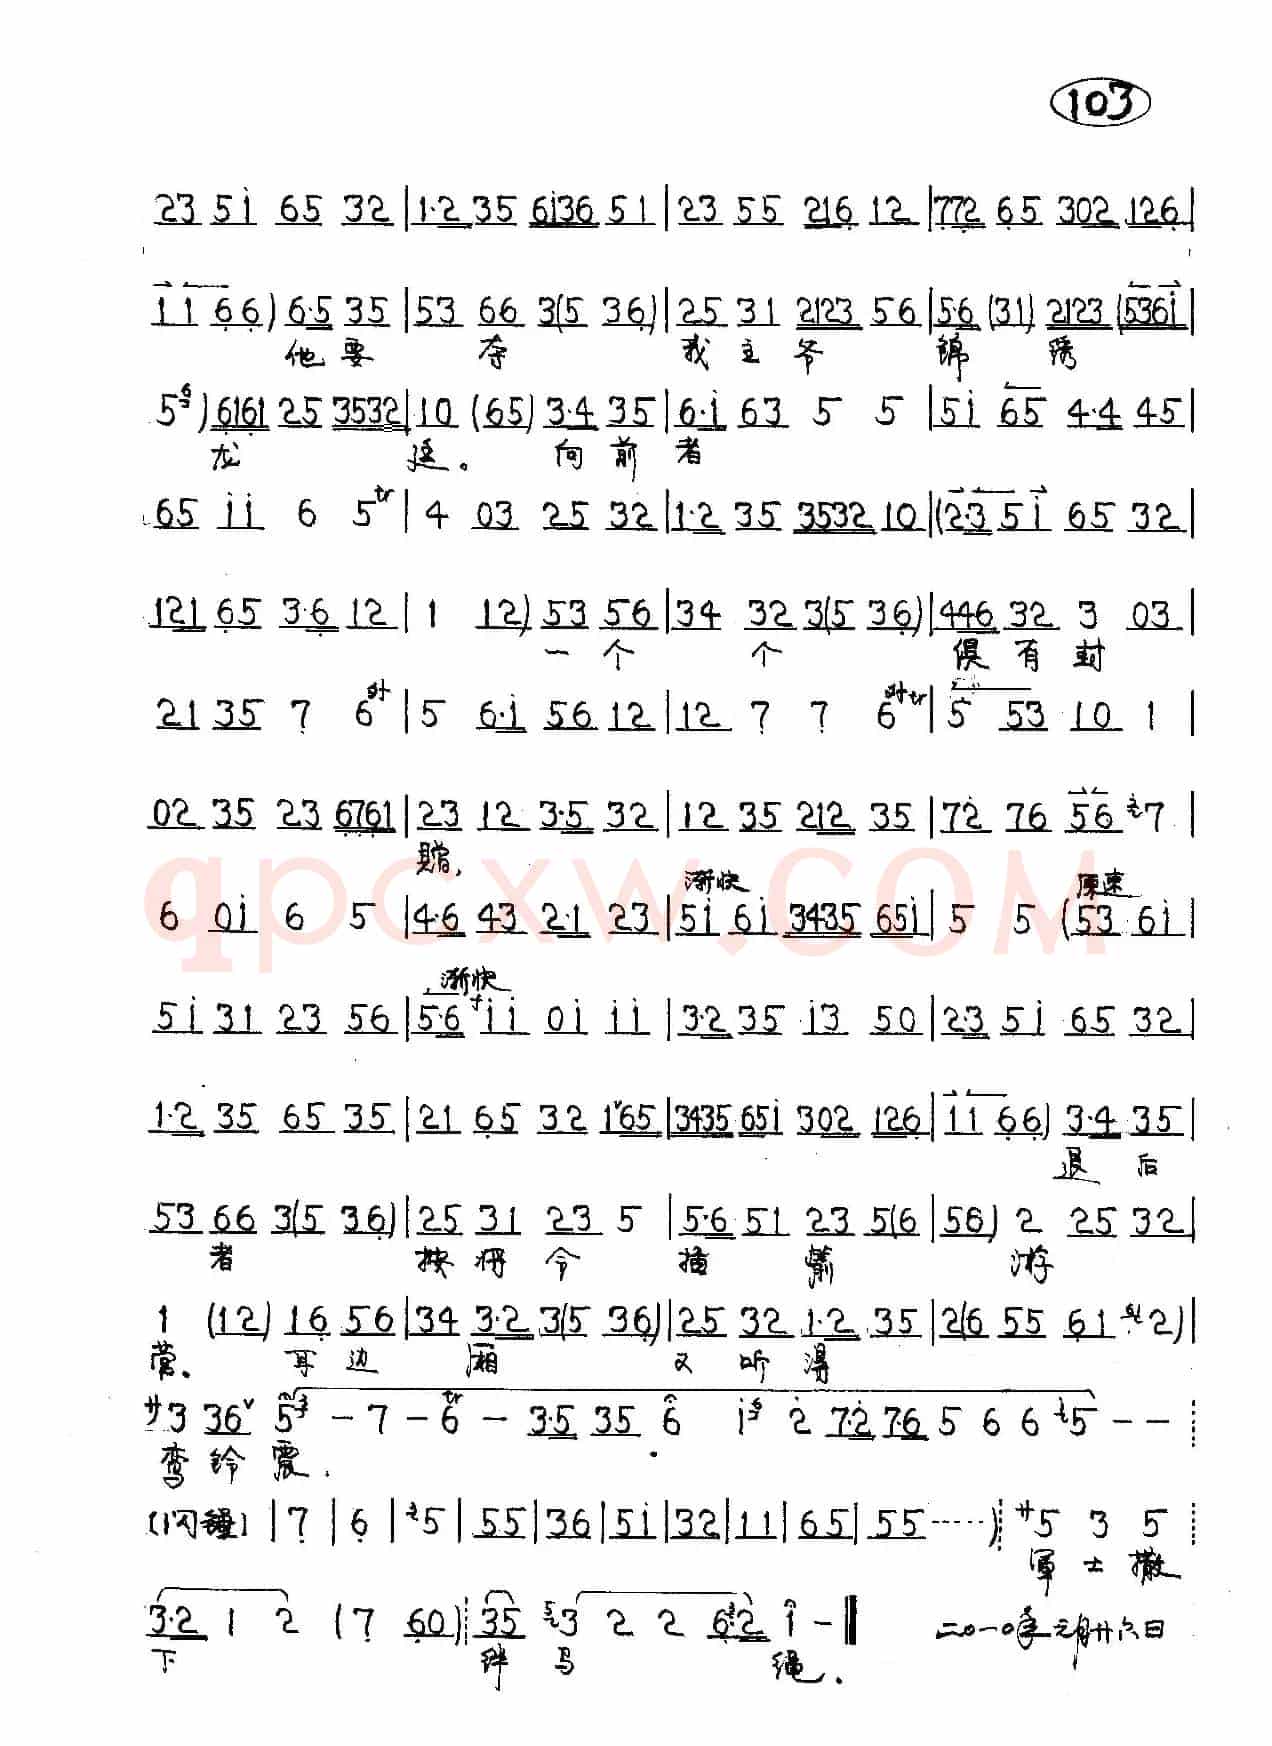 103
23 5i 65 32 | 1·2 35 6i36 51 | 23 55 216 12 | 772 65 302 126 |
11 66) 6·5 35 | 53 66 3(5 36) | 25 31 2123 56 | 5·6 (31) 2123 (536i |
他要 夺 我主爷 锦 绣
5 ) 6161 25 3532 | 10 (65) 3·4 35 | 6·i 63 5 5 | 5i 65 4·4 45 |
龙 廷。 向前者
65 ii 6 5tr | 4 03 25 32 | 1·2 35 3532 10 | (2·3 5i 65 32 |
121 65 3·6 12 | 1 12) 53 56 | 34 32 3(5 36) | 446 32 3 03 |
一个 个 俱有封
21 35 7 6 | 5 6·i 56 12 | 12 7 7 6tr | 5 53 10 1 |
02 35 23 6761 | 23 12 3·5 32 | 12 35 212 35 | 72 76 56 7 |
赠,
渐快 原速
6 0i 6 5 | 4·6 43 2·1 23 | 5i 6i 3435 65i | 5 5 (53 6i |
渐快
5i 31 23 56 | 5·6 ii 0i ii | 3·2 35 i3 50 | 2·3 5i 65 32 |
1·2 35 65 35 | 21 65 32 1265 | 3435 65i 302 126 | 11 66) 3·4 35 |
退后
53 66 3(5 36) | 25 31 23 5 | 5·6 51 23 5(6 | 56) 2 25 32 |
者 按将令 插 箭 游
1 (12) 16 56 | 34 3·2 3(5 36) | 25 32 1·2 35 | 2(6 55 61 2) |
营。 耳边 厢 又听得
サ3 36 5 - 7 - 6tr - 3·5 35 6 i 2 7·2 76 5 6 6 5 - -
鸾铃震.
(闪锤) | 7 | 6 | 5 | 55 | 36 | 5i | 32 | 11 | 65 | 55 ····· ) サ5 3 5
军士撒
3·2 1 2 (7 60) 35 3 2 2 62 1 - ‖
下 绊 马 绳.
二〇一〇年元月廿六日
qpcxw.com